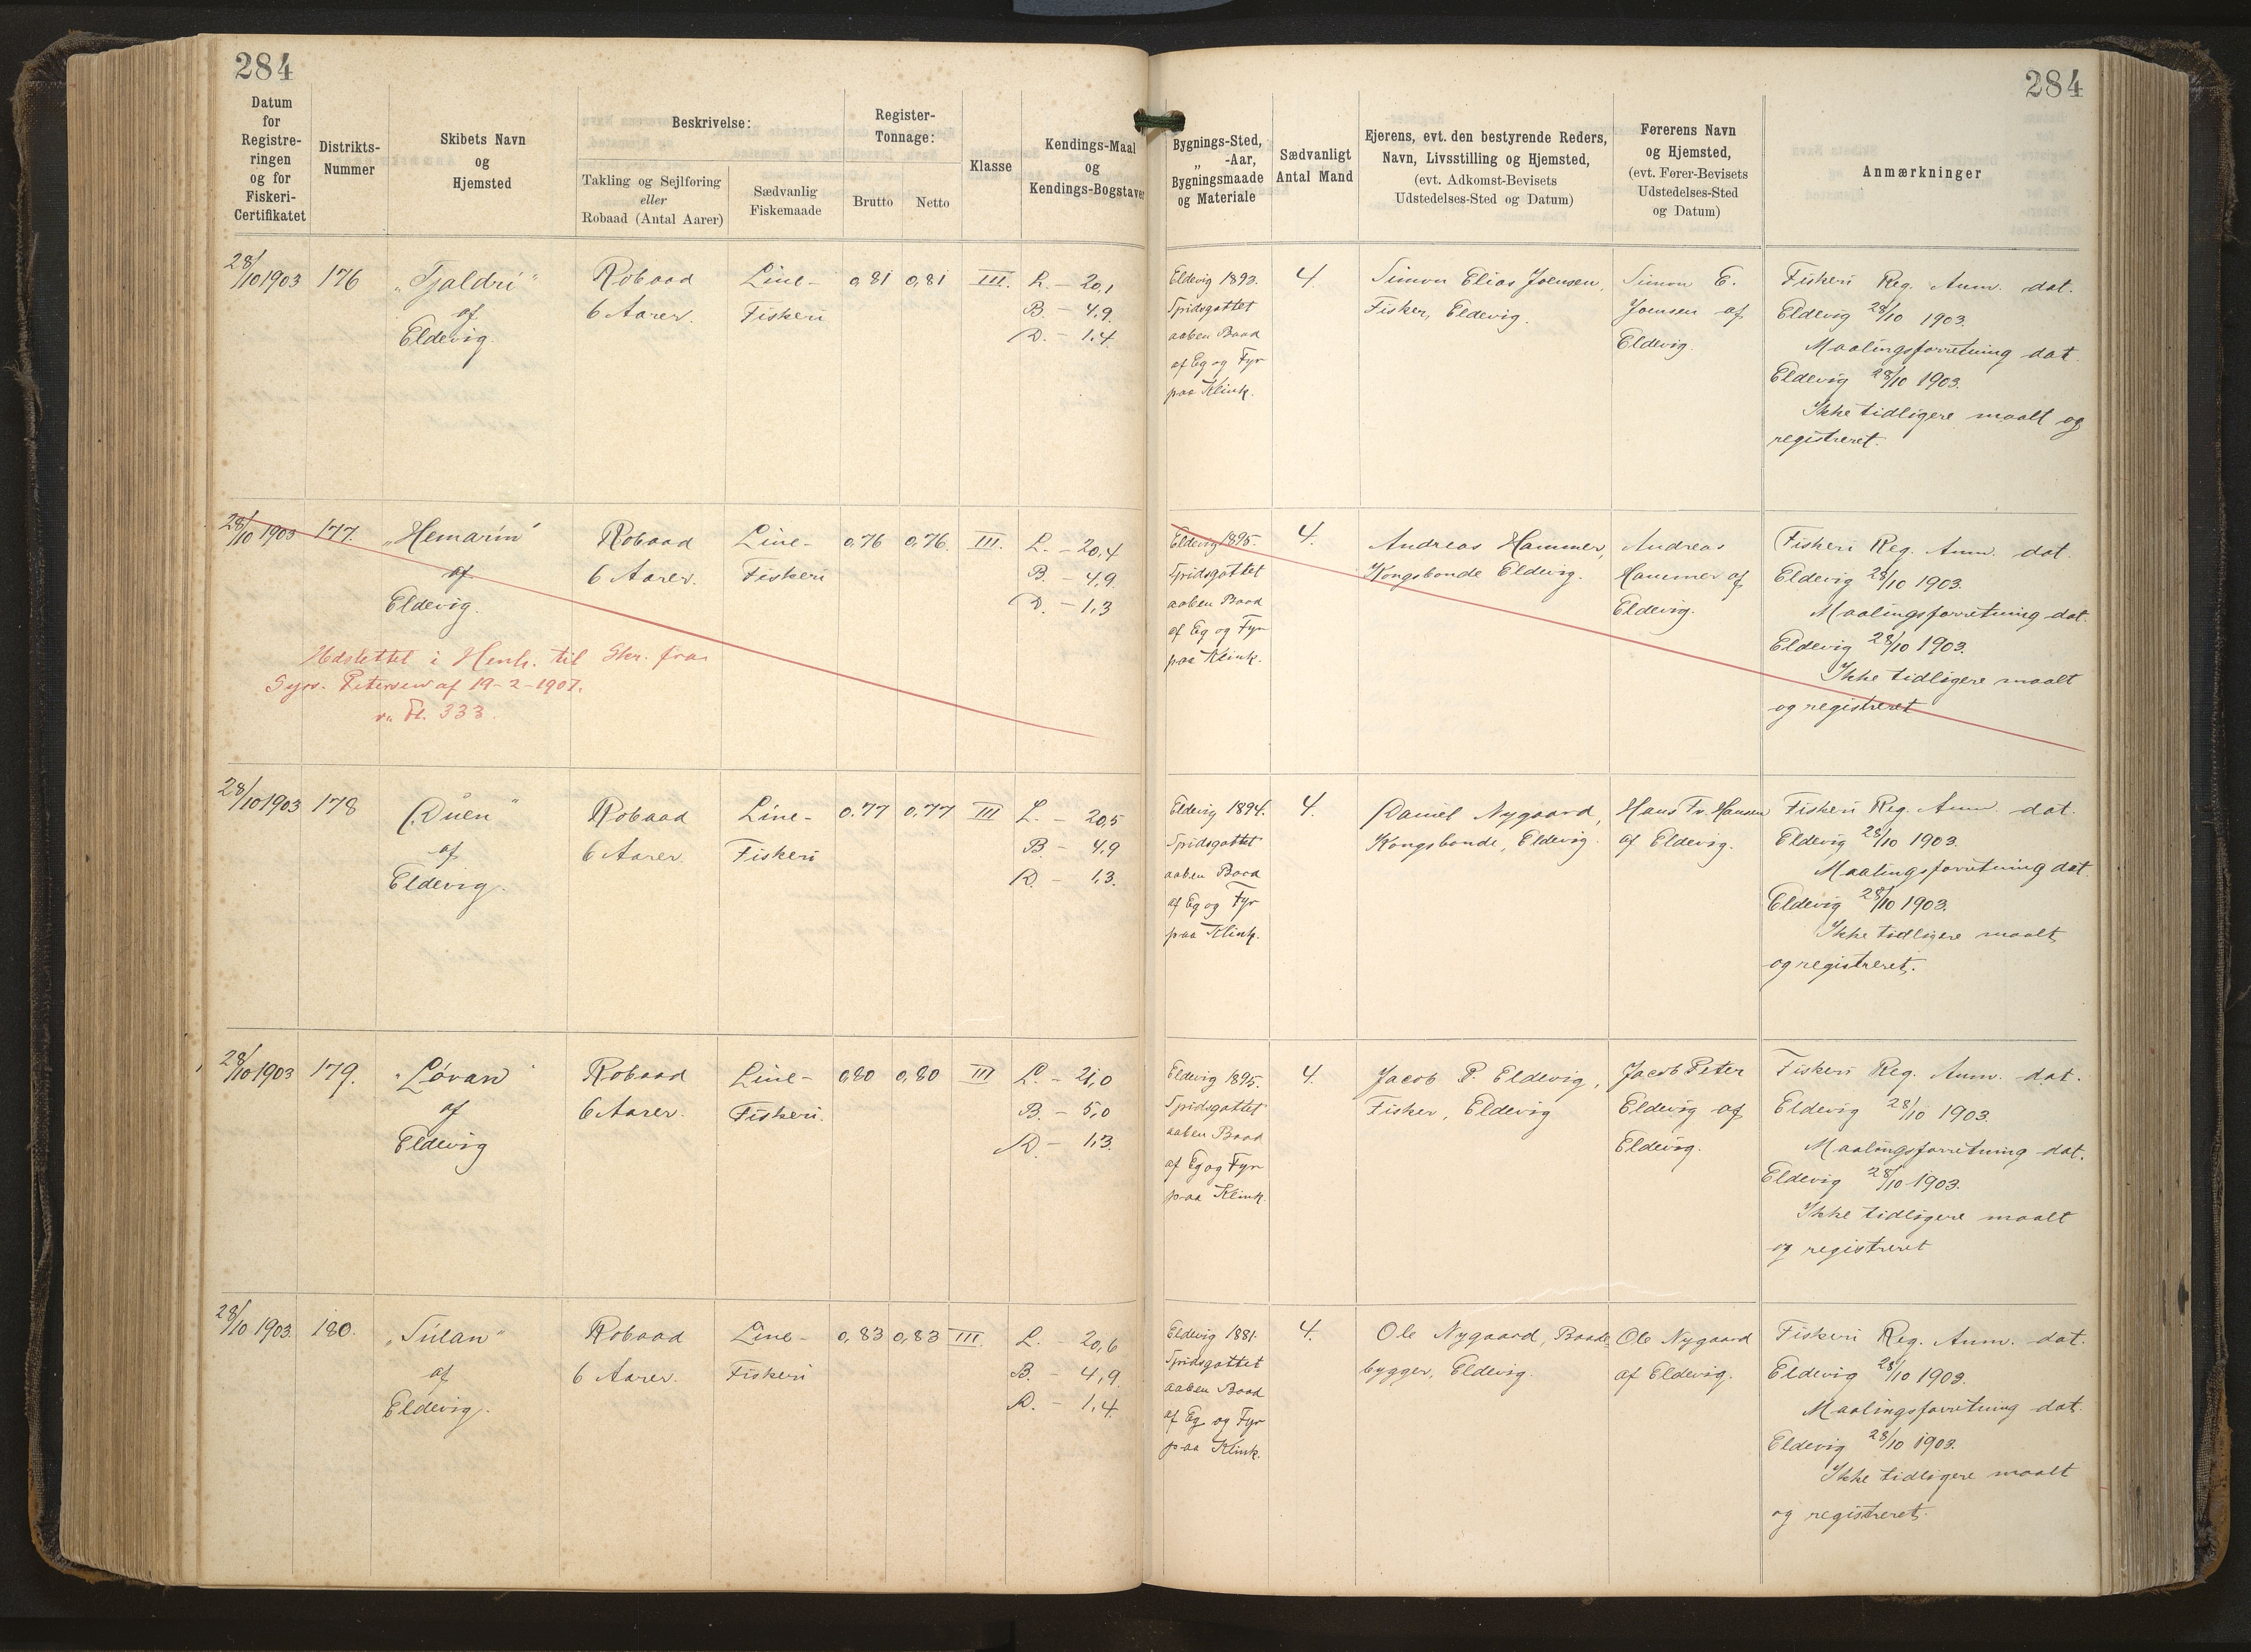 284
284
Datum
for
Registre-
ringen
og for
Fiskeri-
Certifikatet
Distrikts-
Nummer
Skibets Navn
og
Hjemsted
Beskrivelse:
Takling og Sejlføring
eller
Robaad (Antal Aarer)
Sædvanlig
Fiskemaade
Register-
Tonnage:
Brutto
Netto
Klasse
Kendings-Maal
og
Kendings-Bogstaver
Bygnings-Sted,
„ -Aar,
Bygningsmaade
og Materiale
Sædvanligt
Antal Mand
Ejerens, evt. den bestyrende Reders,
Navn, Livsstilling og Hjemsted,
(evt. Adkomst-Bevisets
Udstedelses-Sted og Datum)
Førerens Navn
og Hjemsted,
(evt. Fører-Bevisets
Udstedelses-Sted
og Datum)
Anmærkninger
28/10 1903
176
„Tjaldri“
af
Eldevig.
Robaad
6 Aarer.
Line-
Fiskeri
0,81
0,81
III.
L. - 20,1
B. - 4,9.
D. - 1,4
Eldevig 1893.
Spidsgattet
aaben Baad
af Eg og Fyr
paa Klink.
4.
Simon Elias Joensen,
Fisker, Eldevig.
Simon E.
Joensen af
Eldevig.
Fiskeri Reg. Anm. dat.
Eldevig 28/10 1903.
Maalingsforretning dat.
Eldevig 28/10 1903.
Ikke tidligere maalt og
registreret.
28/10 1903
177.
„Hemarin“
af
Eldevig.
Robaad
6 Aarer.
Line-
Fiskeri
0,76
0,76.
III.
L. - 20,4
B. - 4,9
D. - 1,3
Udslettet i Henh. til Skr. fra
Sysv. Petersen af 19-2-1907.
333.
Eldevig 1895.
Spidsgattet
aaben Baad
af Eg og Fyr
paa Klink.
4.
Andreas Hammer,
Kongsbonde Eldevig.
Andreas
Hammer af
Eldevig.
Fiskeri Reg. Anm. dat.
Eldevig 28/10 1903.
Maalingsforretning dat.
Eldevig 28/10 1903.
Ikke tidligere maalt
og registreret
28/10 1903
178
„Duen“
af
Eldevig.
Robaad
6 Aarer.
Line-
Fiskeri
0.77
0,77
III
L. - 20,5
B. - 4,9
D. - 1,3.
Eldevig 1894.
Spidsgattet
aaben Baad
af Eg og Fyr
paa Klink.
4.
Daniel Nygaard,
Kongsbonde, Eldevig.
Hans Fr. Hansen
af Eldevig.
Fiskeri Reg. Anm dat.
Eldevig 28/10 1903.
Maalingsforretning dat.
Eldevig 28/10 1903.
Ikke tidligere maalt
og registreret.
28/10 1903
179.
„Lóvan“
af
Eldevig
Robaad
6 Aarer.
Line-
Fiskeri.
0,80
0,80
III
L. - 21,0
B. - 5,0
D. - 1,3.
Eldevig 1895.
Spidsgattet
aaben Baad
af Eg og Fyr
paa Klink.
4.
Jacob P. Eldevig,
Fisker, Eldevig
Jacob Peter
Eldevig af
Eldevig.
Fiskeri Reg. Anm. dat.
Eldevig 28/10 1903.
Maalingsforretning dat.
Eldevig 28/10 1903.
Ikke tidligere maalt
og registreret
28/10 1903.
180.
„Súlan“
af
Eldevig.
Robaad
6 Aarer.
Line-
Fiskeri
0,83
0,83
III.
L. - 20,6
B. - 4,9.
D. - 1,4.
Eldevig 1881.
Spidsgattet
aaben Baad
af Eg og Fyr
paa Klink.
4.
Ole Nygaard, Baade-
bygger, Eldevig.
Ole Nygaard
af Eldevig.
Fiskeri Reg. Anm. dat.
Eldevig 28/10 1903.
Maalingsforretning dat.
Eldevig 28/10 1903.
Ikke tidligere maalt
og registreret.